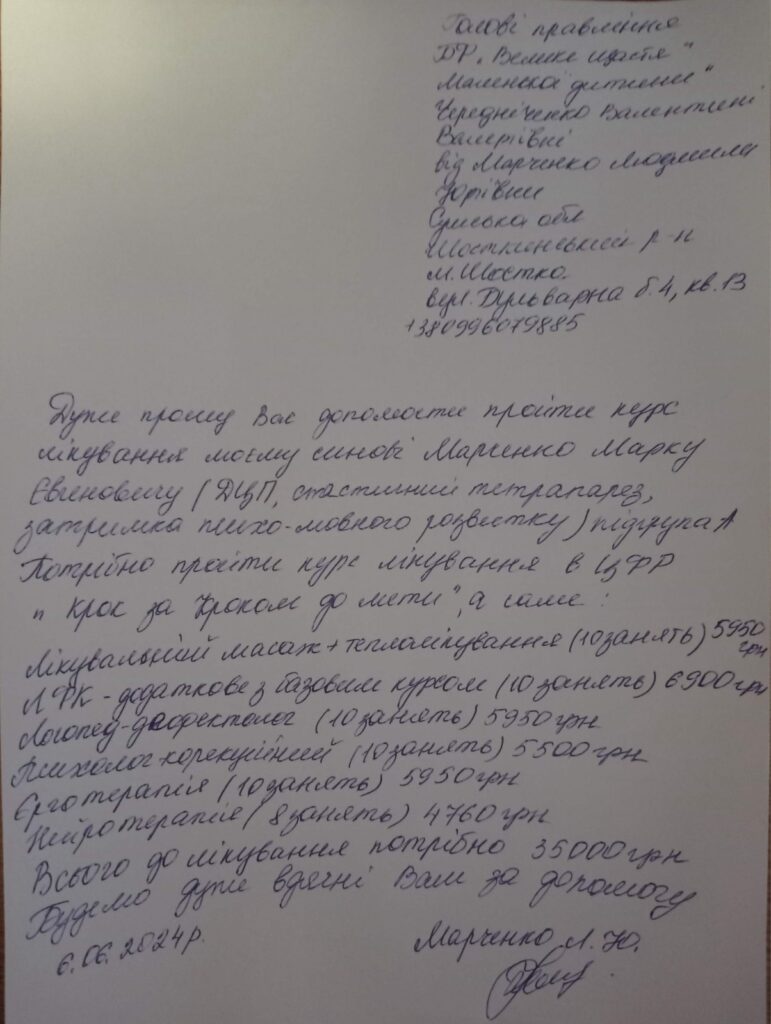 Голові правління
БФ „Велике щастя"
Маленької дитини"
Чередніченко Валентині
Валеріївні
від Марченко Людмили
Юріївни
Сумська обл
Шосткинський р-н
м. Шостка.
вул. Бульварна б.4, кв.13
+380996079885
Дуже прошу Вас допомогти пройти курс
лікування моєму синові Марченко Марку
Євгеновичу (ДЦП, спастичний тетрапарез,
затримка психо-мовного розвитку) підгрупа А
Потрібно пройти курс лікування в ЦФР
„Крок за Кроком до мети", а саме:
Лікувальний масаж + теплолікування (10 занять) 5950
грн
ЛФК - додаткове з базовим курсом (10 занять) 6900 грн
Логопед-дефектолог (10 занять) 5950 грн
Психолог-корекційний (10 занять) 5500 грн
Єрготерапія (10 занять) 5950 грн
Нейротерапія (8 занять) 4760 грн
Всього до лікування потрібно 35000 грн
Будемо дуже вдячні Вам за допомогу
6.06.2024р.
Марченко Л.Ю.